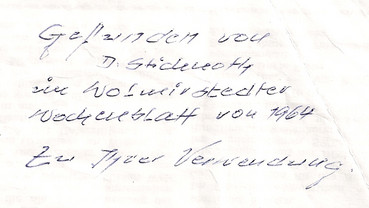 Gefunden von
im Wolmirstedter
Wochenblatt von 1964
Zu Ihrer Verwendung.